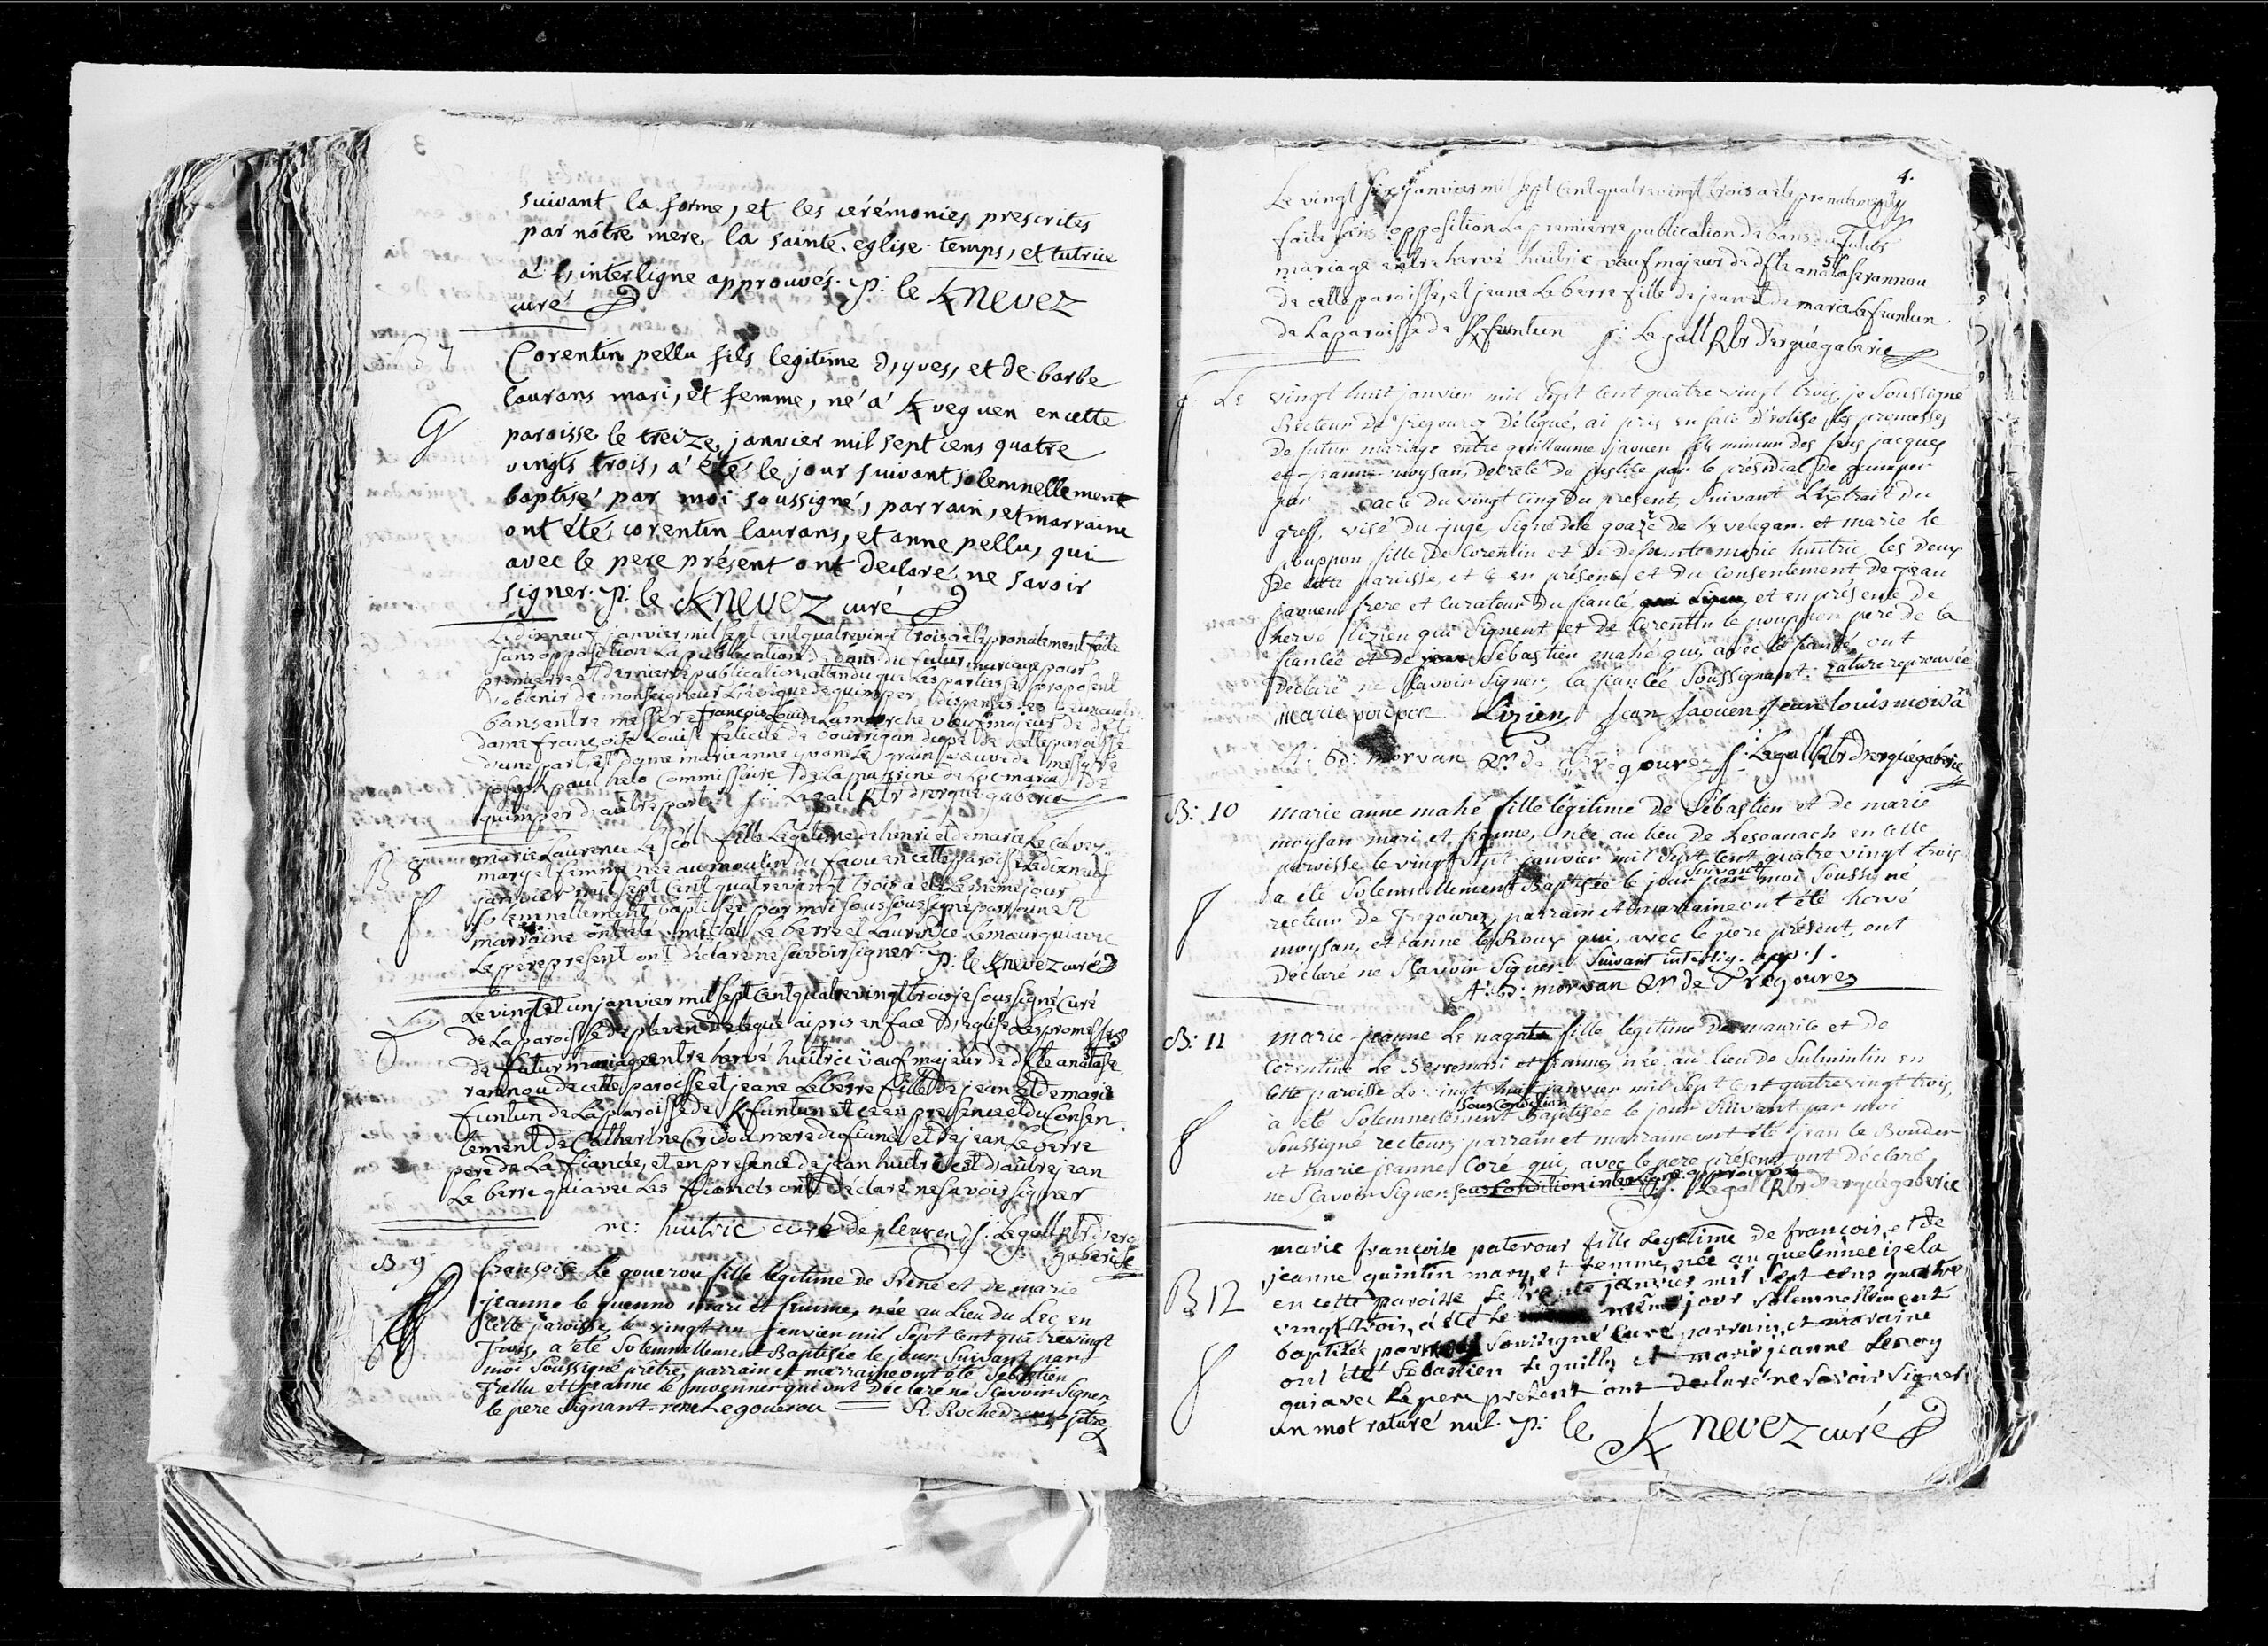 3
suivant la forme, et les cérémonies prescrites
par nôtre mere la sainte eglise. temps, et tutrice
interligne approuvés. p: le Knevez
curé
B 7
Corentin pellu fils legitime d'yves, et de barbe
laurans mari, et femme, né à Kveguen en cette
G
paroisse le treize janvier mil sept cens quatre
vingts trois, à été le jour suivant solemnellement
baptisé par moi soussigné, parrain, et marraine
ont été corentin laurans, et anne pellu, qui
avec le pere présent ont declaré ne savoir
signer. p: le Knevez curé
Le dixneuf janvier mil sept cent quatrevingt trois a été pronalement faite
sans opposition La publication de bans du futur mariage pour
premierre et dernierre publication, attendu que Les parties se proposent
d'obtenir de monseigneur L'evêque de quimper dispenses des
bans entre messire françois Louis de Lamarche veuf majeur de
dame françoise Louise felicité de bourrigan de cette paroisse
d'une part, et dame marieanne yvone Le grain veuve de messire
joseph paul helo Commissaire de La marine de Locmaria de
quimper d'autre part. j: Legall Rtr d'ergué gaberic
B 8
marie Laurence Le scol fille Legitime de henri et de marie Le Calvez
mary et femme née au moulin du faou en cette paroisse Le dixneuf
janvier mil sept cent quatrevingt trois a été Le même jour
f
solemnellement baptisée par moi soussigné parrain et
marraine ont été michel Le berre et Laurence Lemeur qui avec
Le pere present ont déclaré ne savoir signer. p: le Knevez curé
Le vingt et un janvier mil sept Cent quatre vingt trois je soussigné Curé
de La paroisse de pleuven delegué ai pris en face d'eglise Les promesses
de futur mariage entre hervé huitric veuf majeur de dfte anastase
rannou de cette paroisse et jeane Le berre fille de jean et de marie
funtun de La paroisse de Kfuntun et ce en presence et du Consen-
tement de Catherine Cridou mere du fiancé et de jean Le berre
pere de La fiancée, et en presence de jean huitric et d'autre jean
Le berre qui avec Les fiancés ont déclaré ne savoir signer
huitric curé de pleuven, j: Legall Rtr d'ergué
gaberic
B 9
françoise Le gouerou fille legitime de René et de marie
jeanne le guenno mari et femme, née au Lieu du Lec en
cette paroisse le vingt un janvier mil sept cent quatrevingt
trois, a été solemnellement Baptisée le jour suivant par
moi soussigné prêtre, parrain et marraine ont été Sebastien
Trellu et jeanne le moenner qui ont déclaré ne sçavoir signer,
le pere signant. rene Le gouerou
4.
Le vingt six janvier mil sept cent quatrevingt trois a été pronalement
faite sans opposition La premierre publication de bans du futur
mariage entre hervé huitric veuf majeur de dfte anastase rannou
de cette paroisse, et jeane Le berre fille de jean et de marie Le funtun
de La paroisse de Kfuntun j: Legall Rtr d'ergué gaberic
Le vingt huit janvier mil sept cent quatre vingt trois, je soussigné
Recteur de Tregourez délégué, ai pris en face d'église les promesses
de futur mariage entre guillaume jaouen fils mineur des feus jacques
et jeanne moysan, decreté de justice par le présidial de quimper
par acte du vingt cinq du present, suivant L'extrait du
greff, visé du juge, signé de le goazre de Kvelegan. et marie le
pouppon fille de Corentin et de defunte marie huitric, les deux
De cette paroisse, et ce en présence et du consentement de jean
jaouen frere et curateur du fiancé et en présence de
hervé lizien qui signent et de Corentin le pouppon pere de la
fiancée et de Sebastien mahé qui, avec le fiancé, ont
déclaré ne sçavoir signer, la fiancée soussignant. rature reprouvée
marie poupon Lizien jean jaouen
A: G: morvan Rr de Trégourez j: Legall Rtr d'ergué gaberic
B: 10
marie anne mahé fille légitime de Sébastien et de marie
moysan mari et femme, née au lieu de Lesoanach en cette
paroisse le vingt sept janvier mil sept cent quatre vingt trois
a été solemnellement Baptisée le jour suivant par moi soussigné
f
recteur de Tregourez, parrain et marraine ont été hervé
moysan, et anne le Roux qui, avec le pere présent, ont
déclaré ne sçavoir signer. suivant interlig. app.
A: G: morvan Rr de Trégourez
B: 11
marie jeanne Le nagata fille legitime de maurice et de
Corentine Le Berre mari et femme, née au lieu de Sulmintin en
Cette paroisse Le vingt huit janvier mil sept cent quatre vingt trois,
à été solemnellement sous Condition Baptisée le jour suivant par moi
f
soussigné recteur, parrain et marraine ont été jean le Bouder
et marie jeanne Coré qui, avec le pere présent, ont déclaré
ne sçavoir signer sous Condition interligne approuvé j: Legall Rtr d'ergué gaberic
B 12
marie françoise patevour fille Legitime de françois, et de
jeanne quintin mary, et femme, née au quelennec izela
en cette paroisse Le trente janvier mil sept cens quatre
vingt trois, à été Le même jour solemnellement
baptisée par moi soussigné curé parrain, et maraine
f
ont été Sebastien Le guilly et marie jeanne Leroy
qui avec Le pere present ont declaré ne savoir signer
un mot raturé nul. p: le Knevez curé